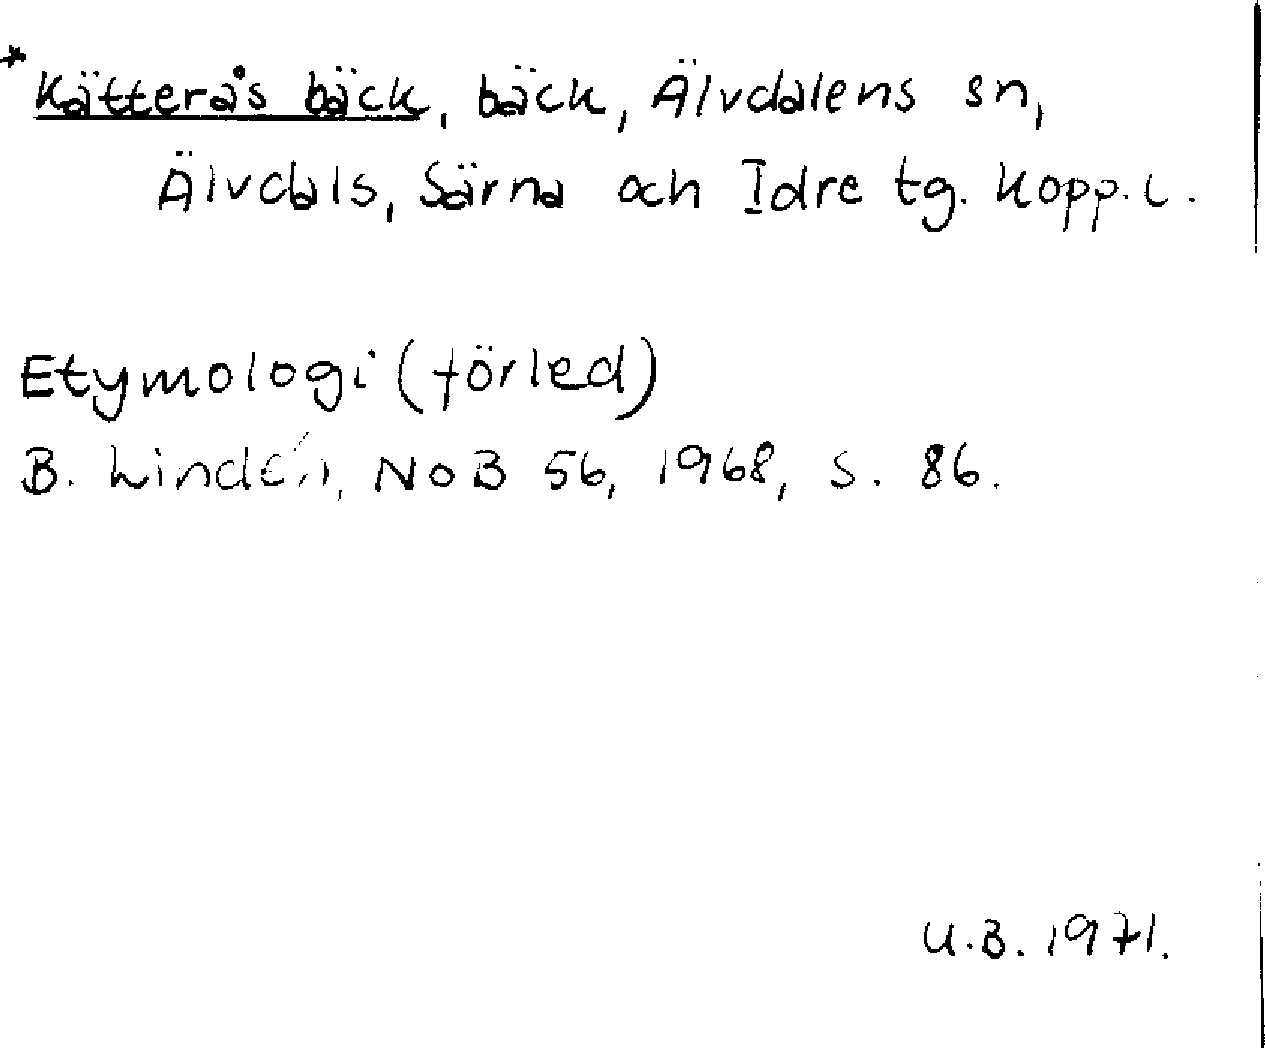 *Kätterås bäck, bäck, Älvdalens sn,
Älvdals, Särna och Idre tg. Kopp. l.
Etymologi (förled)
B. Lindén, NoB 56, 1968, s. 86.
U.B. 1971.